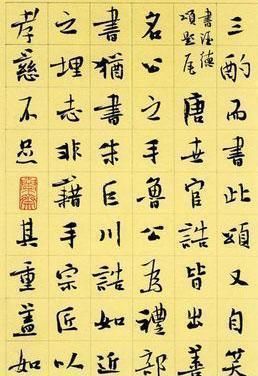 三酌而書此頌又自笑
書酒德
頌題尾
唐世官誥皆出善
名公之手魯公為禮部
書猶書朱巨川誥如近
之埋志非藉手宗匠以
孝慈不足其重蓋如